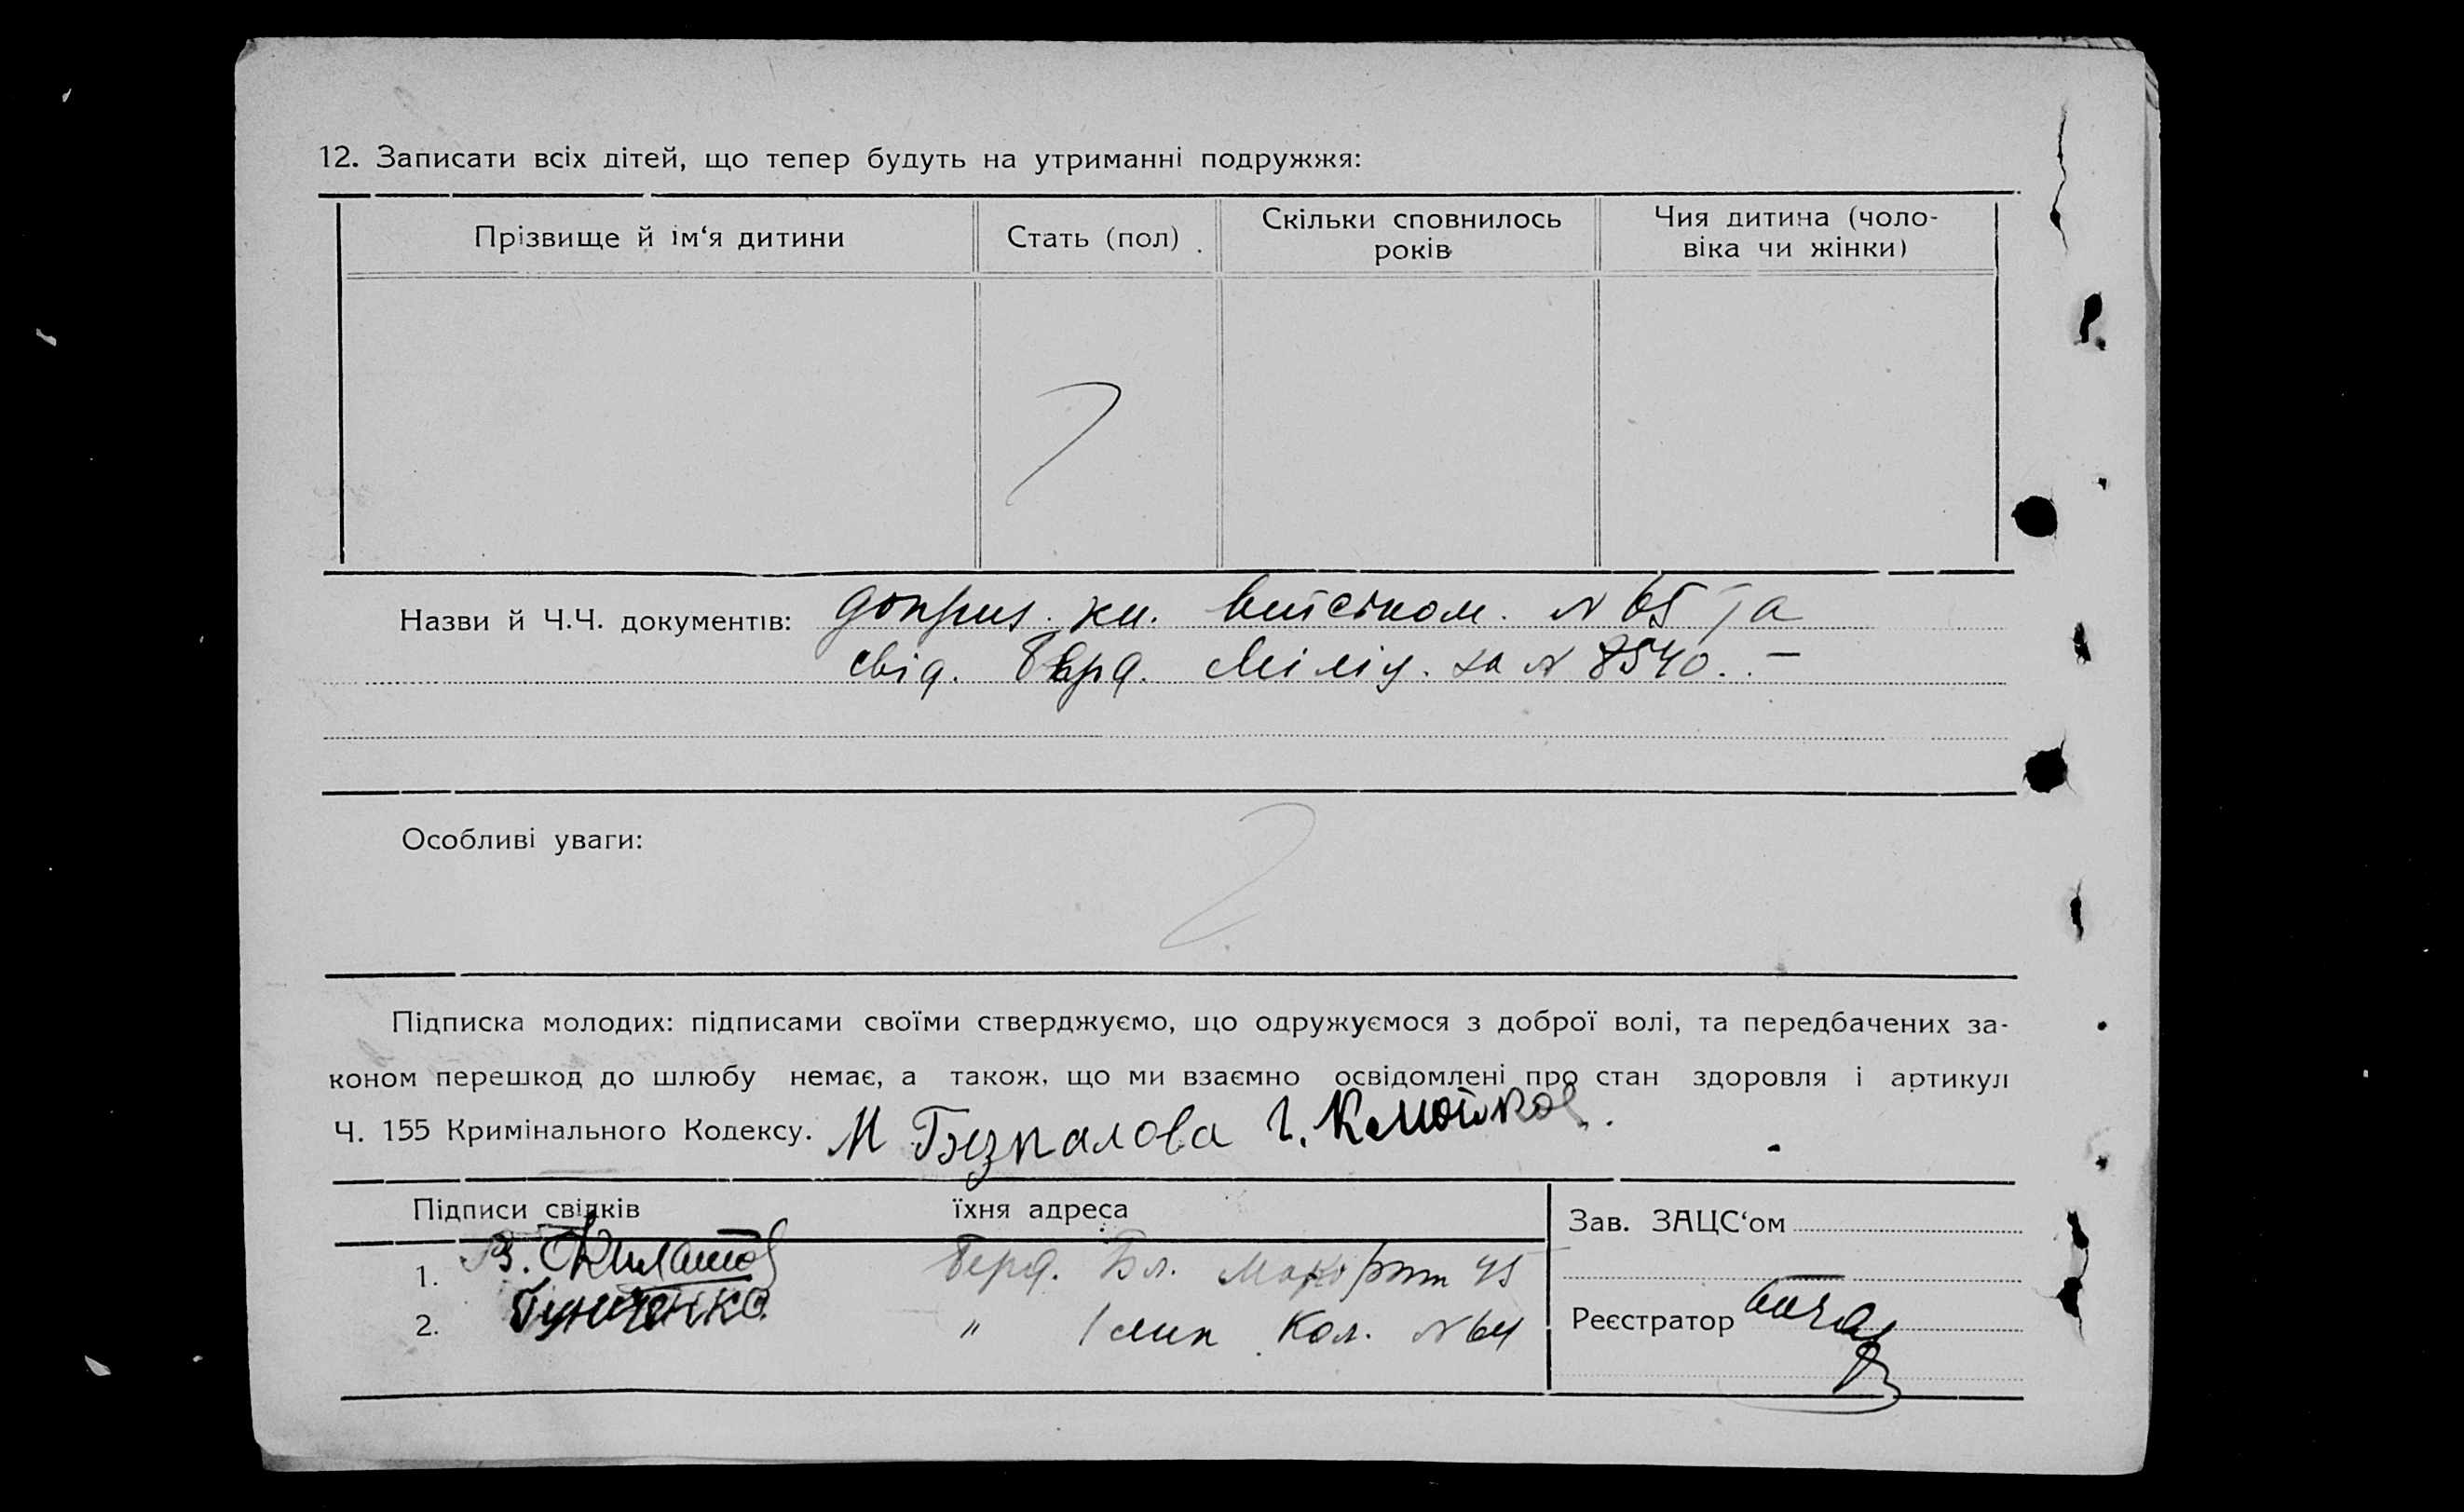 12. Записати всіх дітей, що тепер будуть на утриманні подружжя:
Прізвище й ім‘я дитини
Стать (пол)
Скільки сповнилось
років
Чия дитина (чоло-
віка чи жінки)
Назви й Ч.Ч. документів: доприз. кн. військом. N 65 та
свід. Берд. Міліц. за N 8540. –
Особливі уваги:
Підписка молодих: підписами своїми стверджуємо, що одружуємося з доброї волі, та передбачених за-
коном перешкод до шлюбу немає, а також, що ми взаємно освідомлені про стан здоровля і артикул
Ч. 155 Кримінального Кодексу. М Безпалова Г.
Підписи свідків їхня адреса
Зав. ЗАЦС‘ом
1. В. Берд. Бл. 45
2. " Кол. N 64
Реєстратор